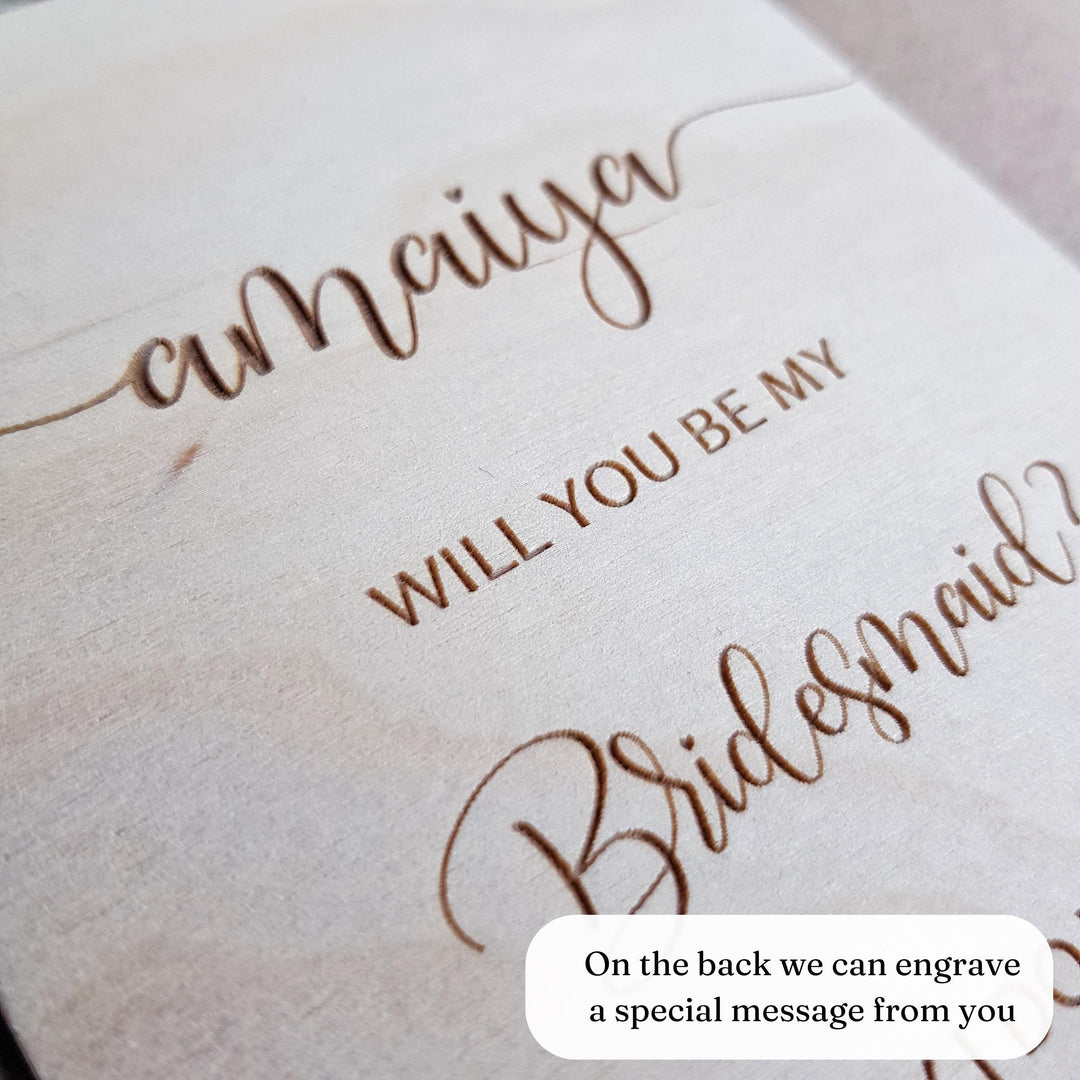 amaiya
WILL YOU BE MY
Bridesmaid?
On the back we can engrave
a special message from you